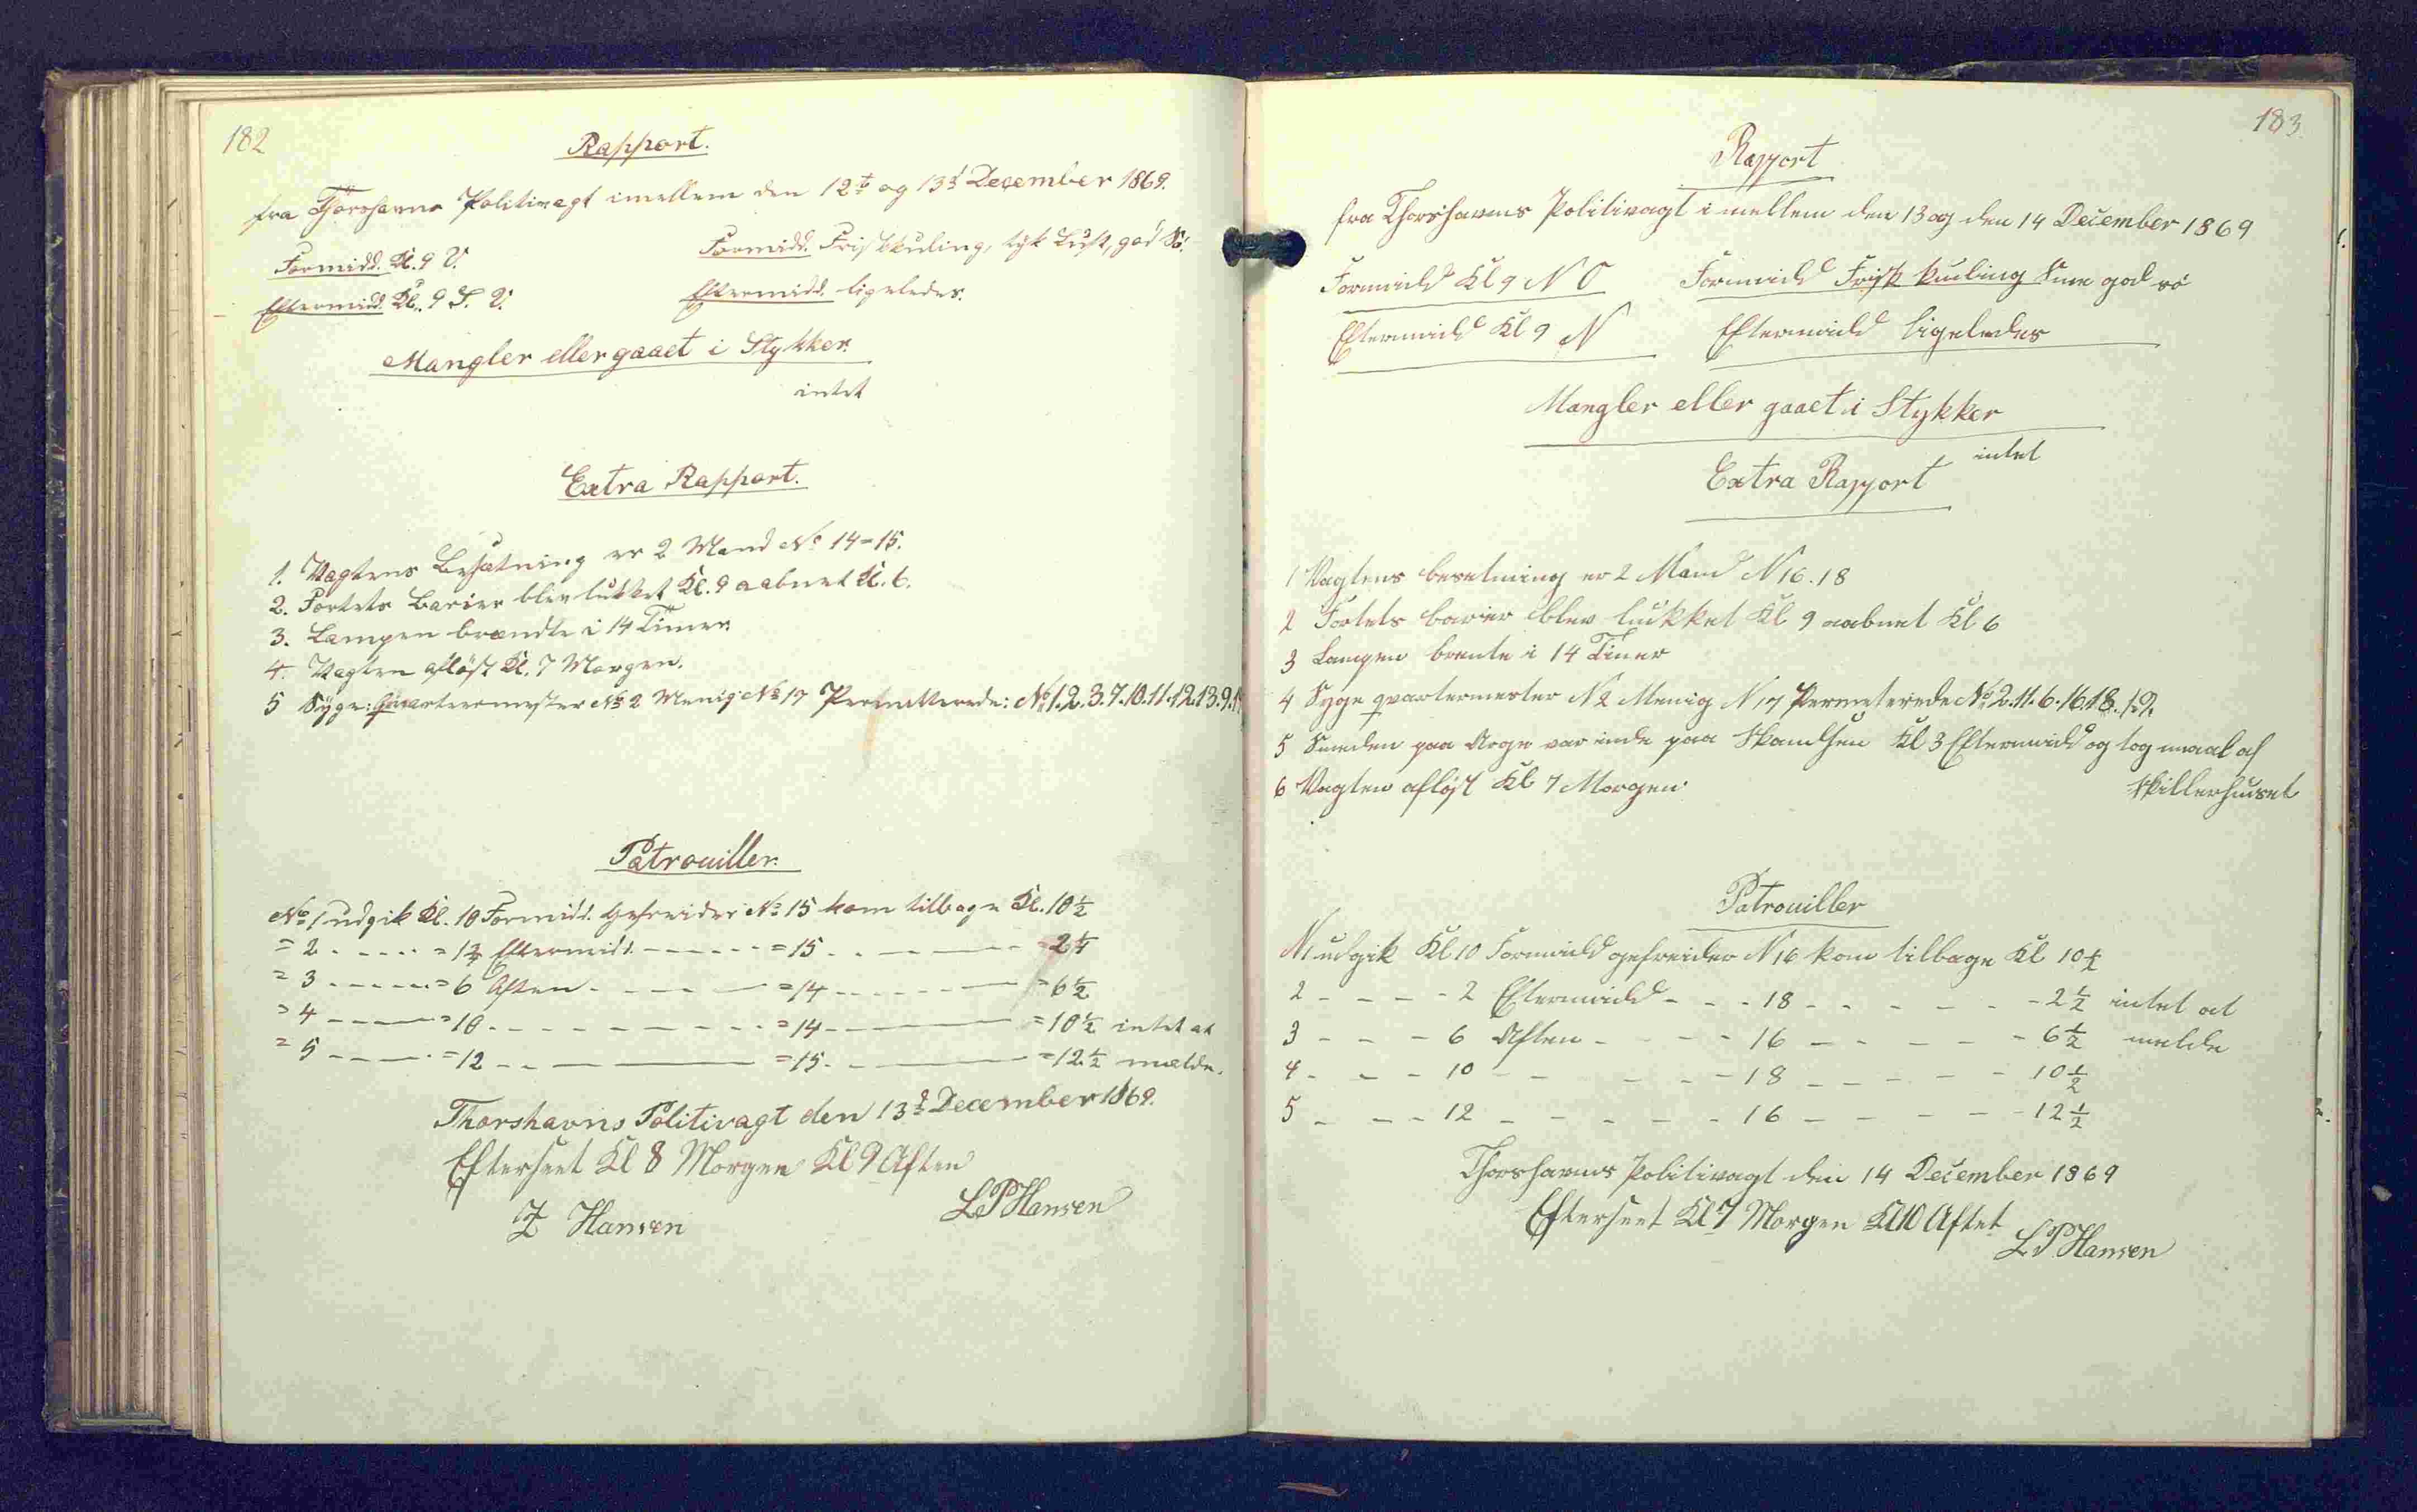 182
Rapport.
fra Thorshavns Politivagt imellem den 12te og 13de December 1869.
Formidd. Kl. 9 V. Formidd. Frisk kuling, tyk Luft, god Sö.
Eftermidd. Kl. 9 S. V. Eftermidd. ligeledes.
Mangler eller gaaet i Stykker.
intet
Extra Rapport.
1. Vagtens Besætning er 2 Mand No 14-15.
2. Fortets Barier blev lukket Kl. 9 aabnet Kl. 6.
3. Lampen brændte i 14 Timer.
4. Vagten aflöst Kl. 7 Morgen.
5 Syge: Quarteermester No 2 Menig No 17 Permitterede: No 1.2.3.7.10.11.12.13.9.
Patrouiller.
No 1 udgik Kl. 10 Formidd. Gefreider No 15 kom tilbage Kl. 10 1/2
= 2 - - - = Eftermidd. - - - = 15 - - - = 2 1/4
= 3 - - - = 6 Aften - - - = 14 - - - = 6 1/2
= 4 - - - = 10 - - - = 14 - - - = 10 1/2 intet at
= 5 - - - = 12 - - - = 15 - - - = 12 1/2 melde.
Thorshavns Politivagt den 13de December 1869.
Efterseet Kl 8 Morgen Kl 9 Aften
Hansen L P Hansen
183
Rapport
fra Thorshavns Politivagt imellem den 13 og den 14 December 1869
Formidd Kl 9 N O Formidd Frisk kuling Snee god sö
Eftermidd Kl 9 N Eftermidd ligeledes
Mangler eller gaaet i Stykker
intet
Extra Rapport
1 Vagtens besetning er 2 Mand N 16. 18
2 Fortets barier blev lukket Kl 9 aabnet Kl 6
3 Lampen brente i 14 Timer
4 Syge qvartermester N 2 Menig N 17 Permeterede No 2.11.6.16.18.
5 Smeden paa Arge var inde paa Skandsen Kl 3 Eftermidd og tog maal af
skillerhuset
6 Vagten afløst Kl 7 Morgen
Patrouiller
N 1 udgik Kl 10 Formidd gefreider N 16 kom tilbage Kl 10 1/2
2 - - - - 2 Eftermidd - - - 18 - - - - - - 2 1/2 intet at
3 - - - 6 Aften - - - - 16 - - - - - 6 1/2 melde
4 - - - 10 - - - - - 18 - - - - - 10 1/2
5 - - - 12 - - - - - 16 - - - - - 12 1/2
Thorshavns Politivagt den 14 December 1869
Efterseet Kl 7 Morgen Kl 10 Aftet
L. P. Hansen